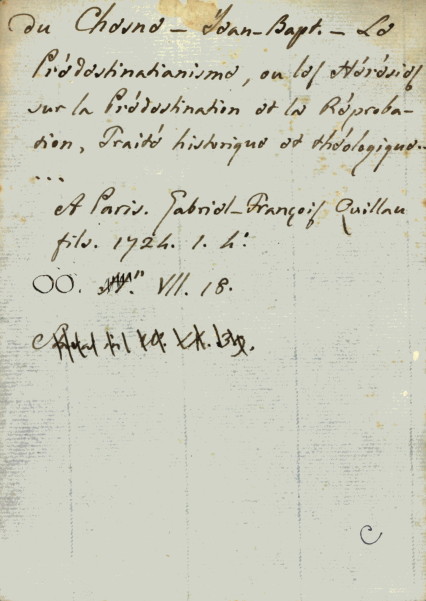 Du Chesne - Jean-Bapt. - Le
Prédestinatianisme, ou les Hérésies
sur la Prédestination et la Réproba-
tion, Traité historique et théologique..
...
A Paris. Gabriel-François Quillau
fils. 1724. 1. 4°.
OO. VII. 18.
C